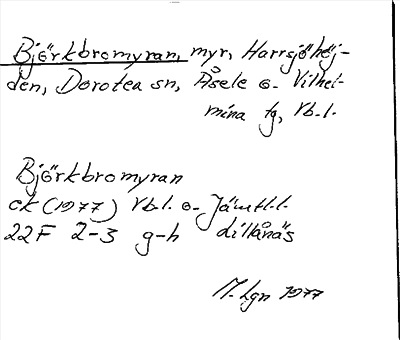 Björkbromyran, myr, Harrsjöhöj-
den, Dorotea sn, Åsele o. Vilhel-
mina tg, Vb.l.
Björkbromyran
ek (1977) Vb.l. o. Jämtl.l.
22F 2-3 g-h Lillånäs
M. Lgn 1977